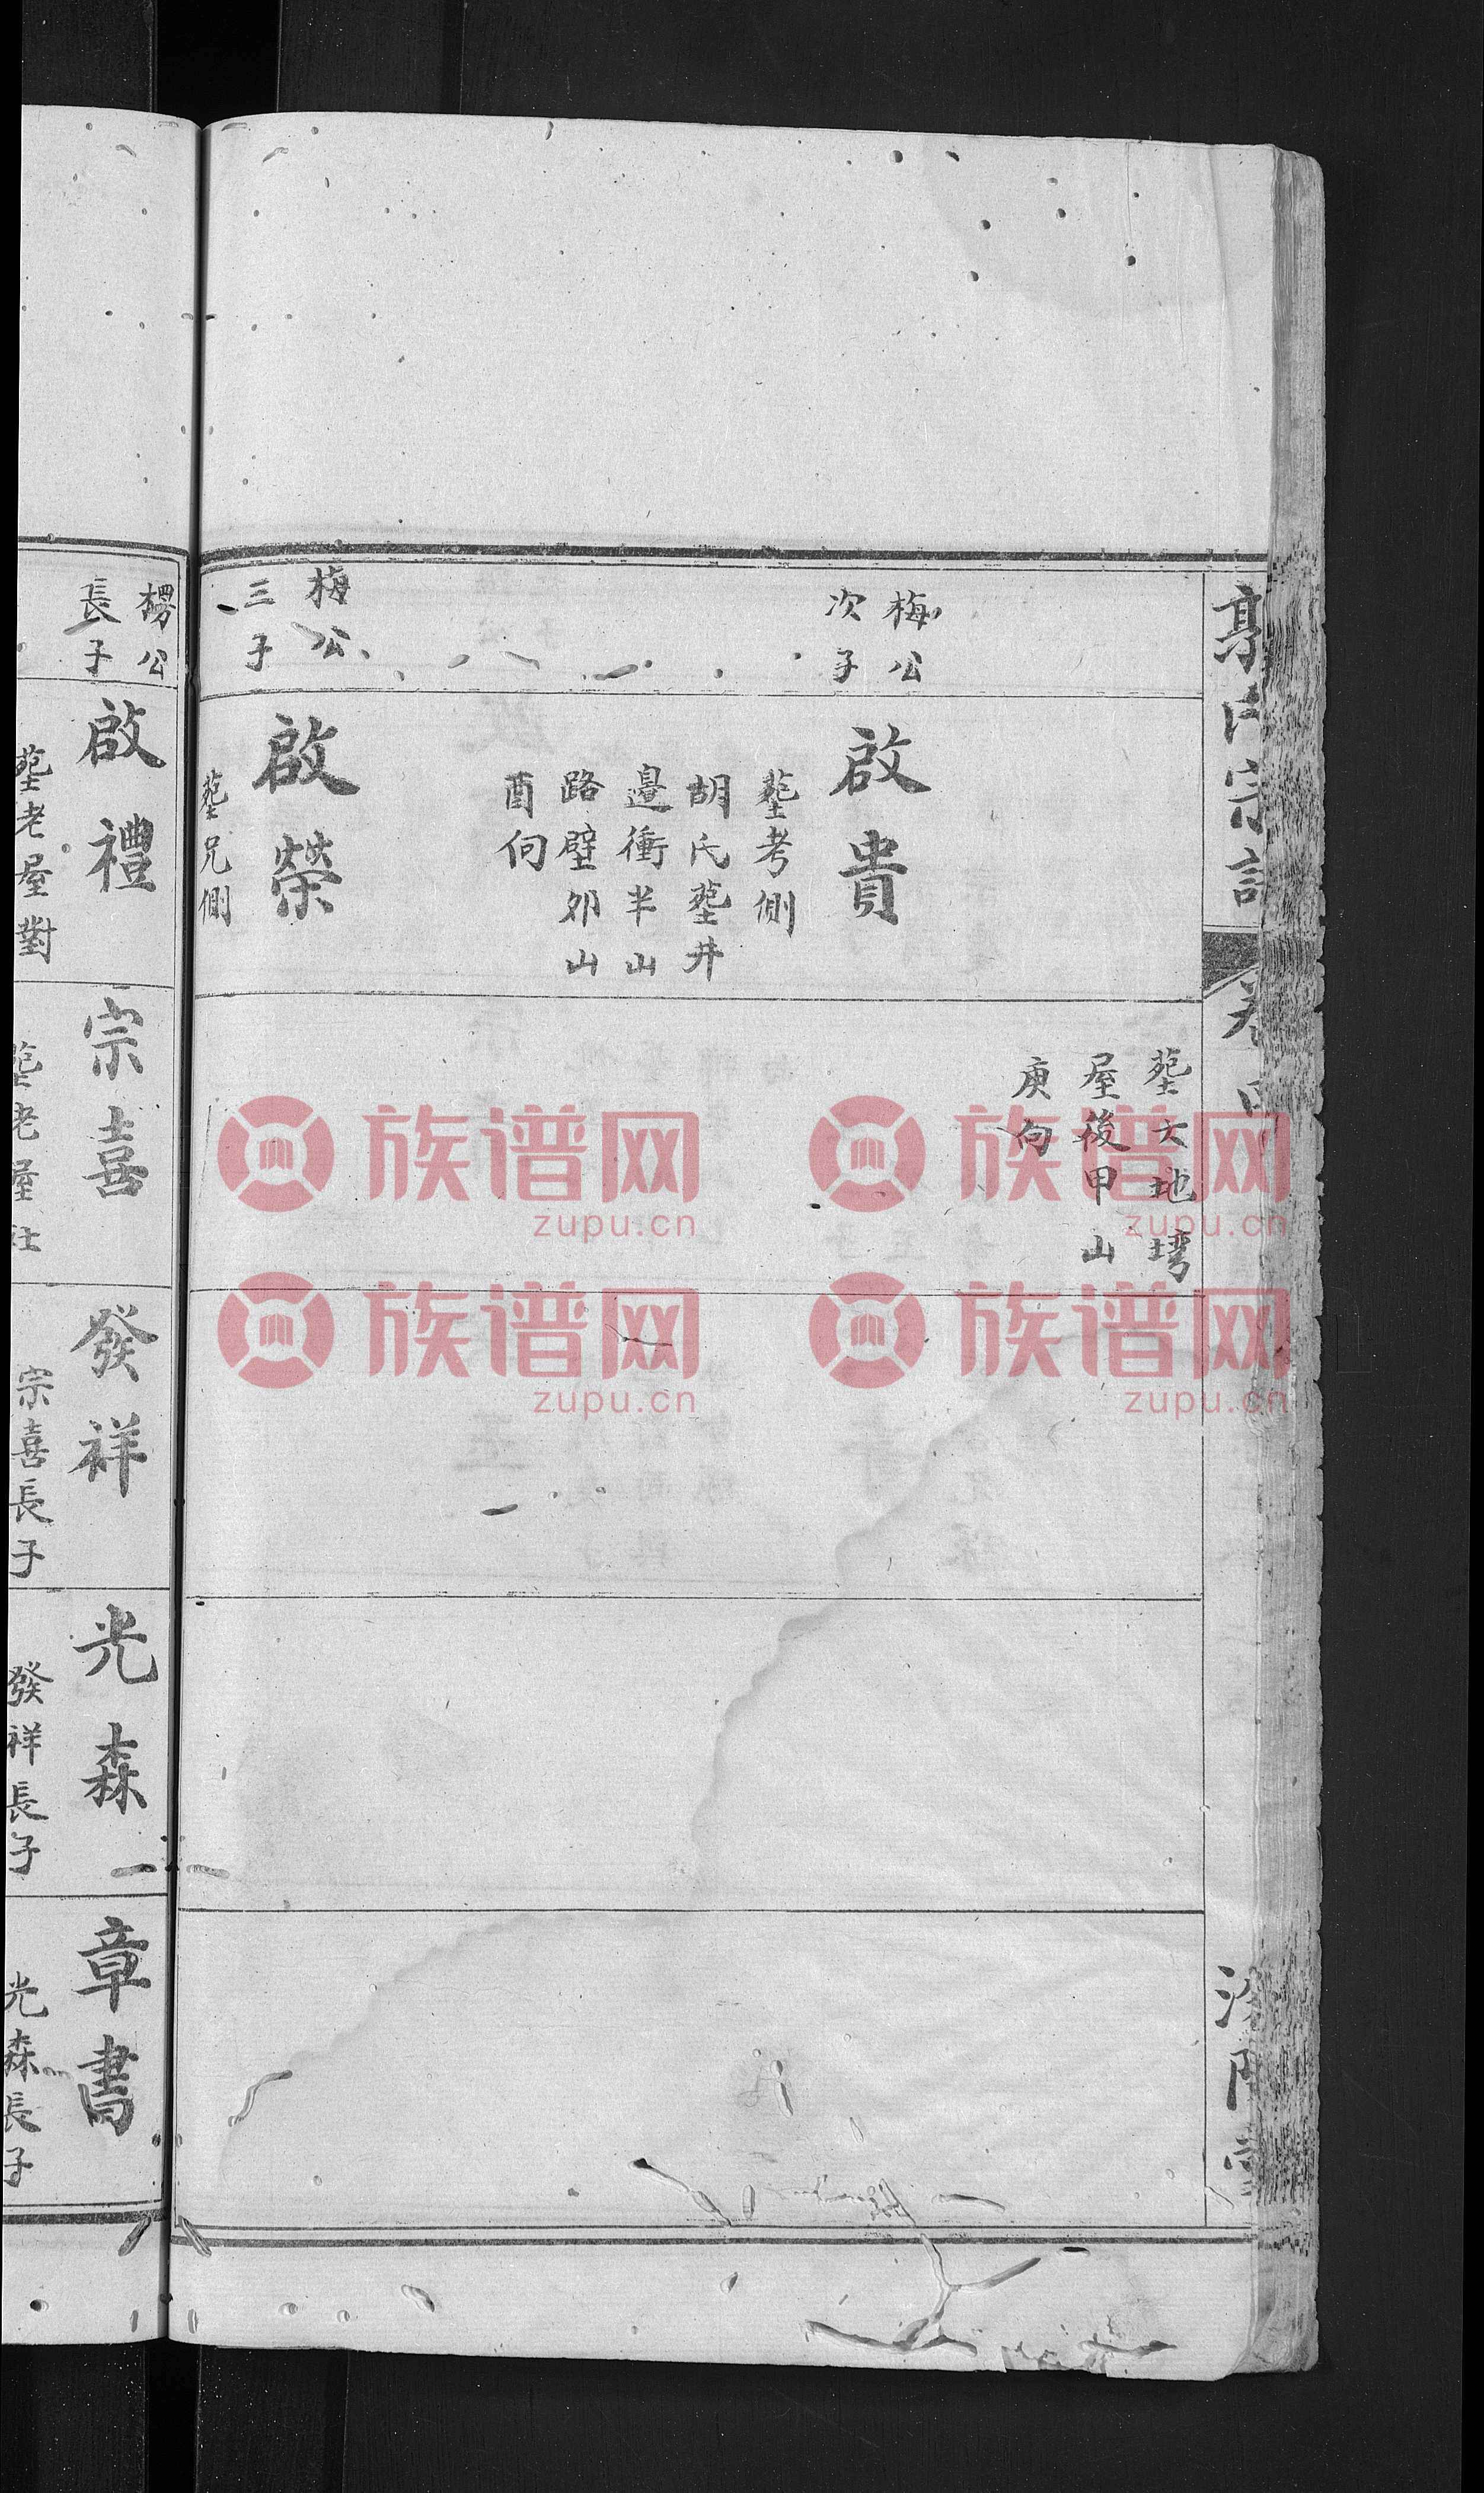 宗
葬大地塆
屋後甲山
庚向
梅公
次子
啟貴
葬考側
胡氏葬井
邉衝半山
路壁夘山
酉向
梅公
三子
啟榮
葬兄側
公
長子
啟禮
葬老屋對
宗喜
葬老屋
發祥
宗喜長子
光森
發祥長子
章書
光森長子
族谱网
zupu.cn
族谱网
zupu.cn
族谱网
zupu.cn
族谱网
zupu.cn